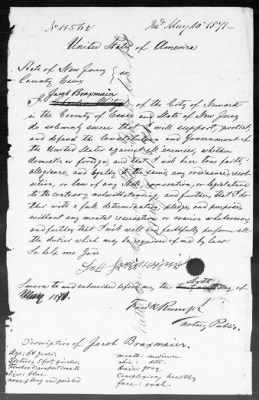 No 11562
Isd May 10th 1871.
United States of America
State of New Jersey } ss
County Essex
I, Jacob Braxmaier
of the City of Newark
in the County of Essex and State of New Jersey
do solemnly swear that I will support, protect,
and defend the Constitution and Government of
the United States against all enemies, whether
domestic or foreign, and that I will bear true faith,
allegiance, and loyalty to the same, any ordinance, resolution,
or law of any State, convention, or legislature
to the contrary notwithstanding; and further that I do
this with a full determination, pledge, and purpose,
without any mental reservation or evasion whatsoever;
and further that I will well and faithfully perform all
the duties which may be required of me by law.
So help me God
Jacob Braxmaier
Sworn to and subscribed before me, the day of
May 1871.
Notary Public.
Description of Jacob Braxmaier.
Age: years
Stature: 5 feet
Forehead: proportionate
Eyes: blue
Nose: long and pointed
mouth: medium
chin: ditto
hair: gray
Complexion: healthy
face: oval